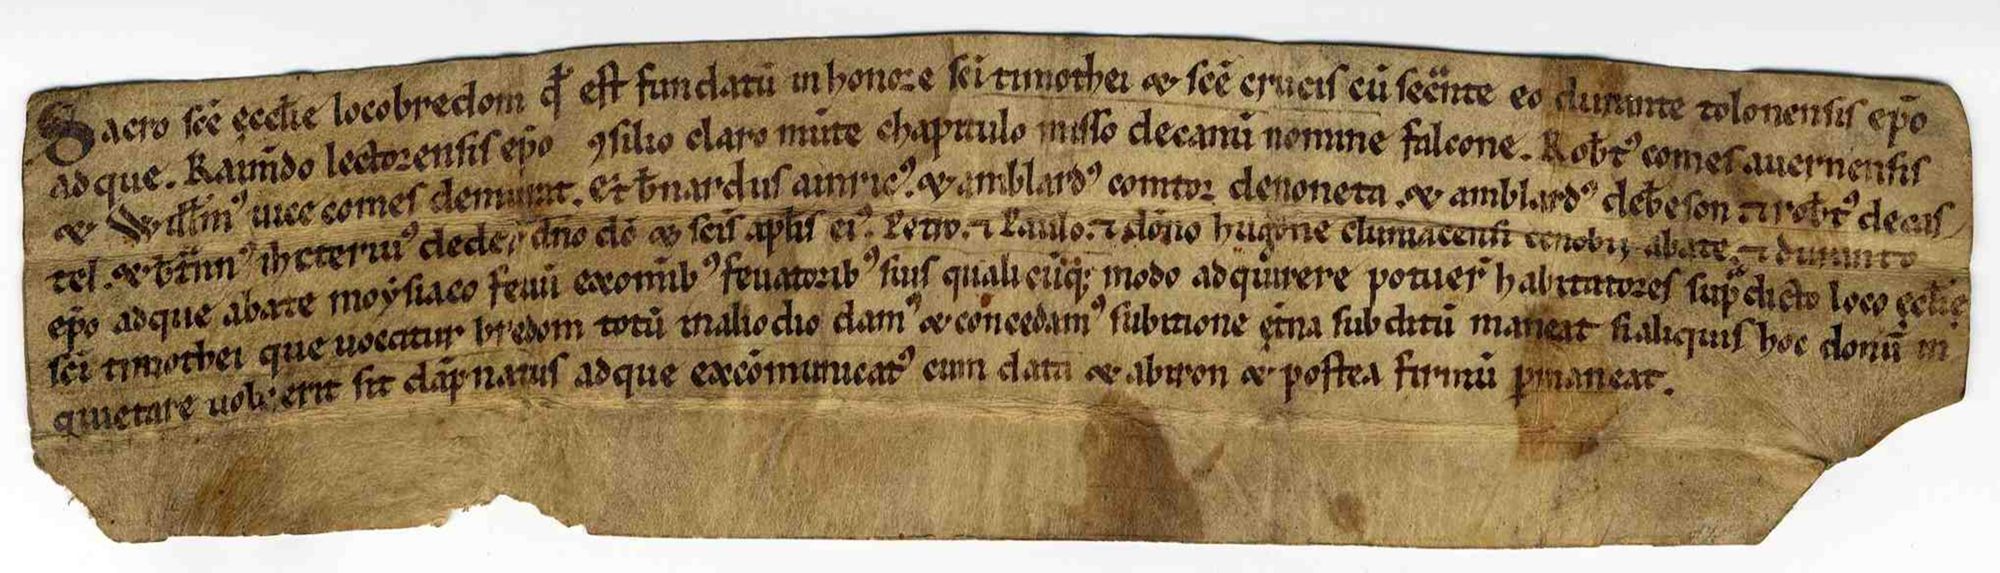 Sacro scē ęccł̄ie locobredom qđ est fundatū in honore sc̄i timothei & scē crucis cū secͣnte eo duraurante tolonensis ep̄o
adque. Raim̄do lectorensis ep̄o ꝯsilio claro mūte chapitulo misso decanū nomine falcone. Rob̄tꝰ comes auernensis
& Willm̄ꝰ uice comes demurat. Et b̄nardus ainricꝰ. & amblardꝰ comtor denoneta. & amblardꝰ deb̄eson ⁊ rob̄tꝰ decas
tel. & b̄tlmꝰ ihcteriuꝰ deder dn̄o dō & scīs apl̄is eiꝰ. Petro. ⁊ Paulo. ⁊ dōno hugone cluniacensi cenobii abate. ⁊ duranto
ep̄o adque abate moysiaco feuū exomīb᷒ feuatorib᷒ siuis qualicūq; modo adquirere potuer̄ habitatores supͣdicto loco ęccł̄ię
sc̄i timothei que uocatur bredom totū inaliodio damꝰ & concedamꝰ subitione ęt̄na subditū maneat si aliquis hoc donū in
quietare uoluerit sit dāpnatus adque excōmunicatꝰ cum datan & abiron & postea firmū ꝑmaneat.